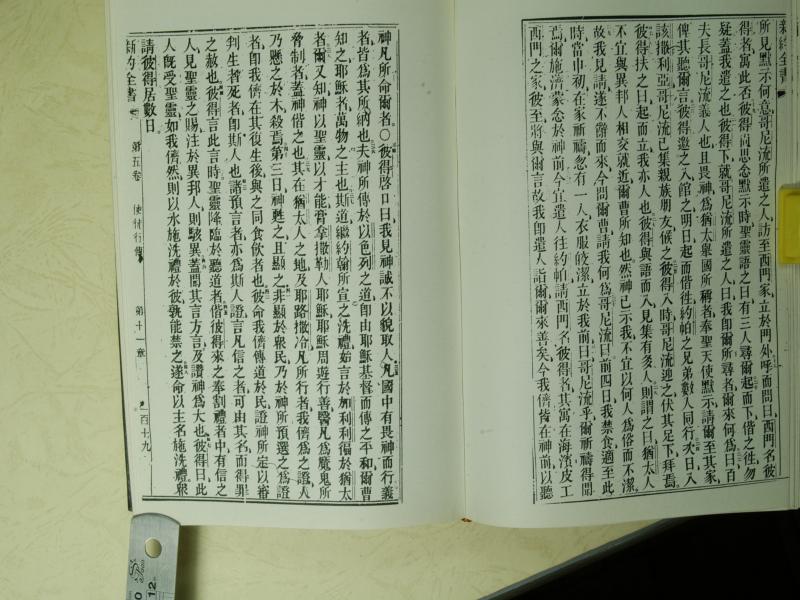 新約全書
所見默示何意哥尼流所遣之人訪至西門家立於門外呼而問曰西門名彼
得者寓此否彼得尚思念默示時聖靈語之曰有三人尋爾起而下偕之往勿
疑蓋我遣之也彼得下就哥尼流所遣之人曰我即爾所尋者爾來何爲曰百
夫長哥尼流義人也且畏神爲猶太舉國所稱者奉聖天使默示請爾至其家
俾其聽爾言彼得邀之入館之明日起而偕往約帕之兄弟數人同行次日入
該撒利亞哥尼流已集親族朋友候之彼得入時哥尼流迎之伏其足下拜焉
彼得扶之曰起而立我亦人也彼得與語而入見集有多人則謂之曰猶太人
不宜與異邦人相交就近爾曹所知也然神已示我不宜以何人爲俗而不潔
故我見請遂不辭而來今問爾曹請我何爲哥尼流曰前四日我禁食適至此
時當申初在家祈禱忽有一人衣服皎潔立於我前曰哥尼流乎爾祈禱得聞
焉爾施濟蒙念於神前今宜遣人往約帕請西門名彼得者其寓在海濱皮工
西門之家彼至將與爾言故我即遣人詣爾爾來善矣今我儕皆在神前以聽
神凡所命爾者〇彼得啓口曰我見神誠不以貌取人凡國中有畏神而行義
者皆爲其所納也夫神所傳於以色列之道即由耶穌基督而傳之平和爾曹
知之耶穌者萬物之主也斯道繼約翰所宣之洗禮始言於加利利徧於猶太
者爾又知神以聖靈以才能膏拿撒勒人耶穌耶穌周遊行善醫凡爲魔鬼所
脅制者蓋神偕之也其在猶太人之地及耶路撒冷凡所行者我儕爲之證人
乃懸之於木殺焉第三日神甦之且顯之非顯於衆民乃於神所預選之爲證
者即我儕在其復生後與之同食飲者也彼命我儕傳道於民證神所定以審
判生者死者即斯人也諸預言者亦爲斯人證言凡信之者可由其名而得罪
之赦也彼得言此言時聖靈降臨於聽道者偕彼得來之奉割禮者中有信之
人見聖靈之賜注於異邦人則駭異蓋聞其言方言及讚神爲大也彼得曰此
人既受聖靈如我儕然則以水施洗禮於彼孰能禁之遂命以主名施洗禮衆
請彼得居數日
新約全書 第五卷 使徒行傳 第十一章 一百十九